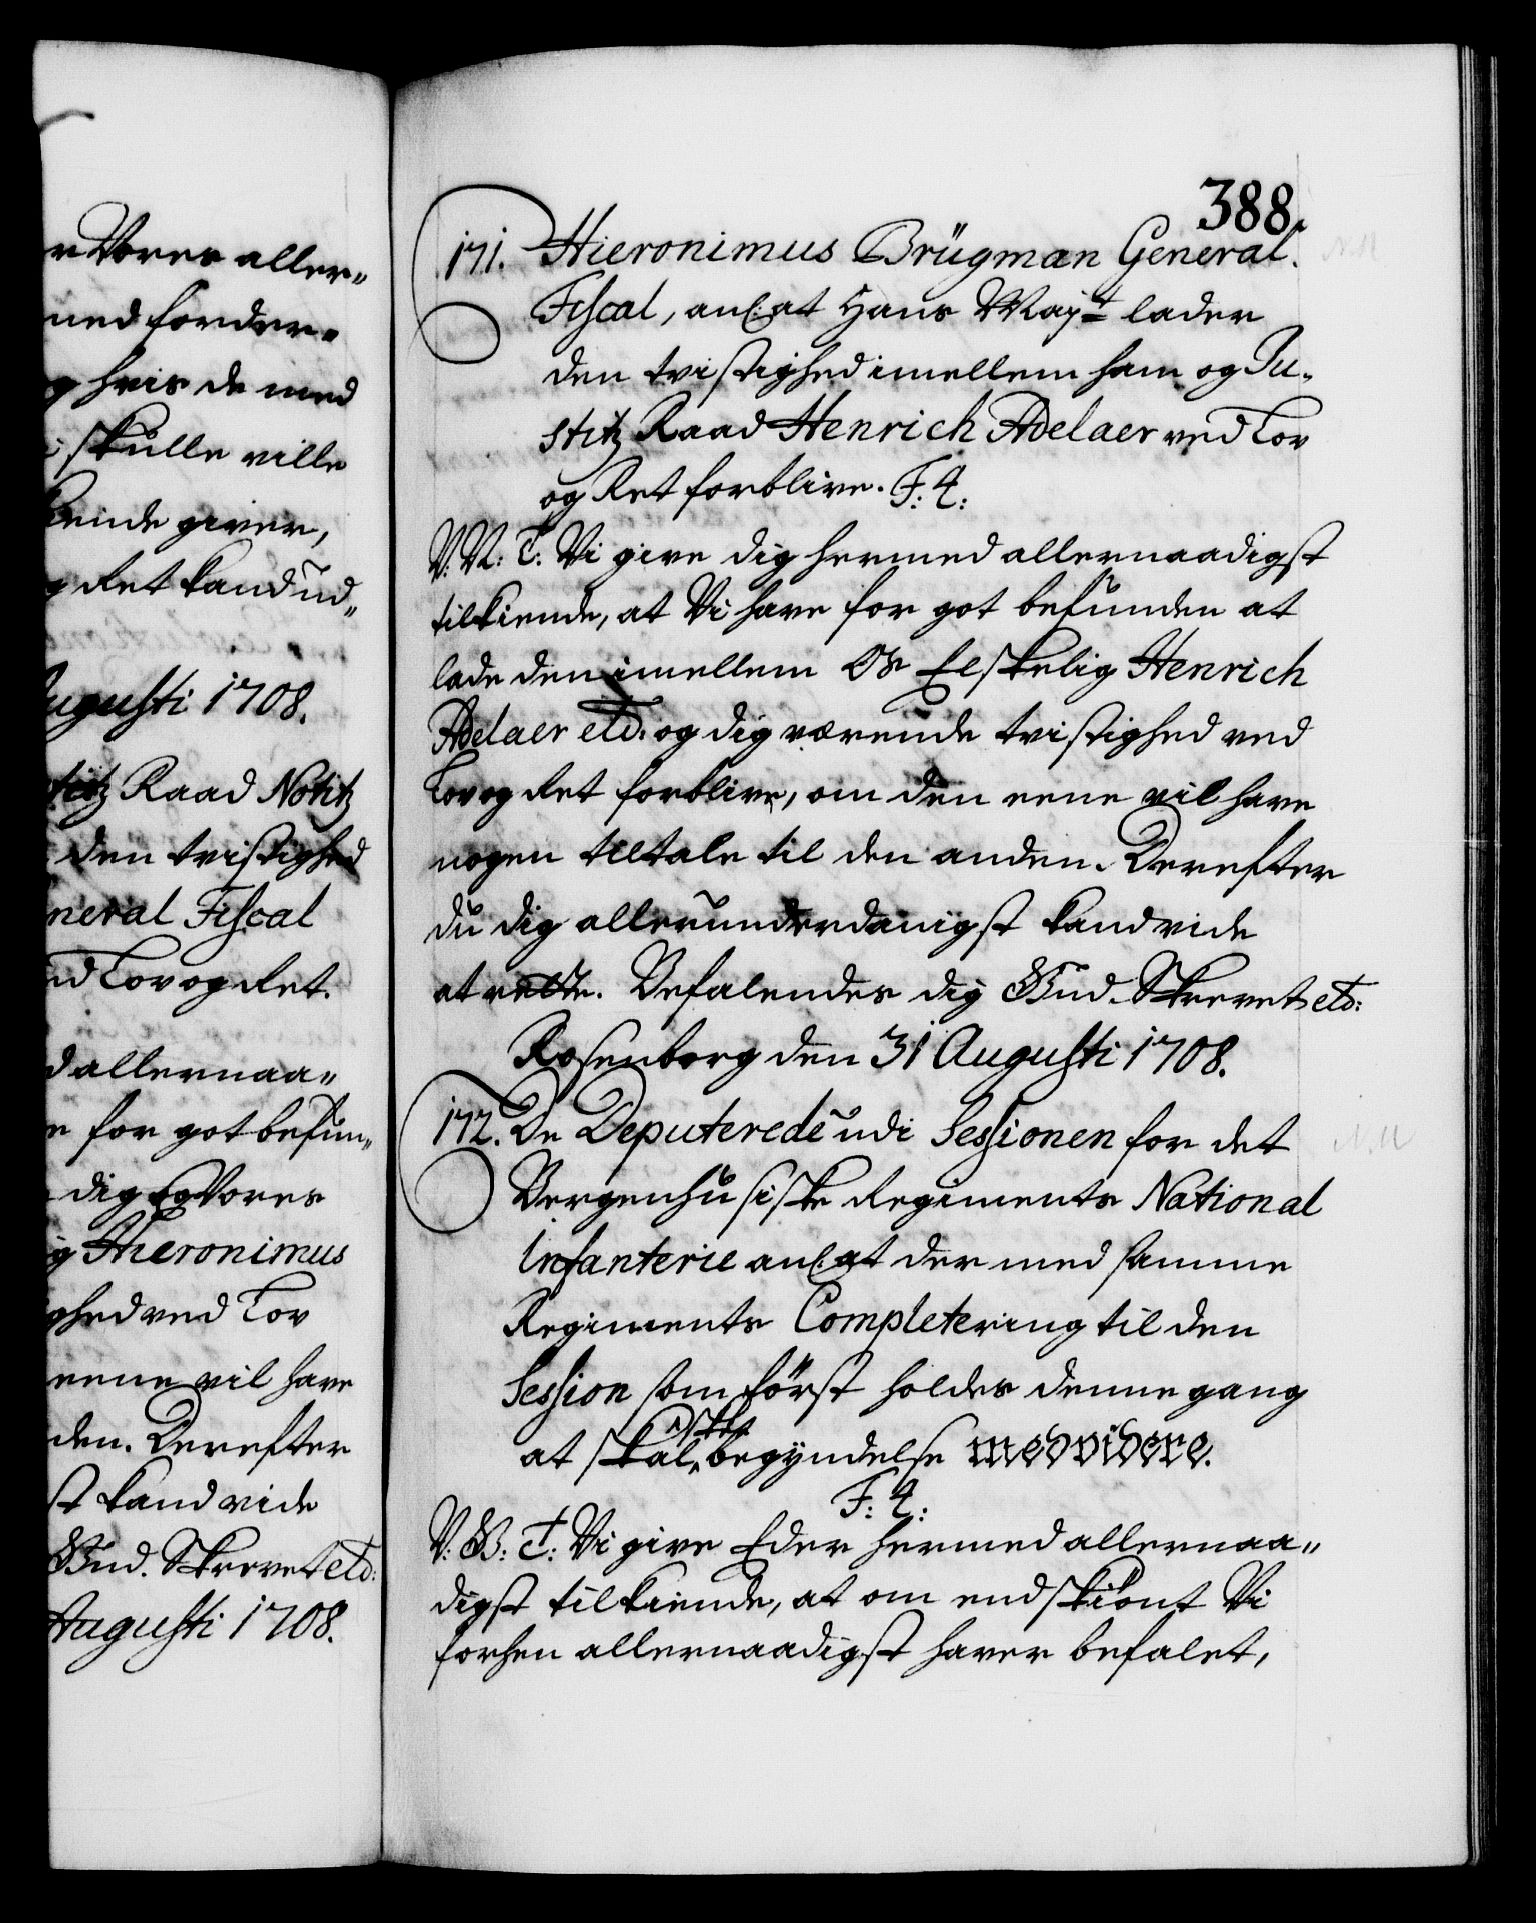 r Vores aller„
med forder„
g hvis de med
skulle ville
kiende giver,
g Ret kand ud„
Augusti 1708.
titz Raad Notitz
den tvistighed
neral Fiscal
ed Lov og Ret.
d allernaa„
e for got befun„
dig og Vores
g Hieronimus
ghed ved Lov
eene vil have
den. Derefter
st kand vide
Gud. Skrevet etc:
Augusti 1708.
388.
171. Hieronimus Brügman General.
Fiscal, anl: at Hans Majt lader
den tvistighed imellem ham og Ju„
stitz Raad Henrich Adelaer ved Lov
og Ret forblive. F. 4:
V: N: T: Vi give dig hermed allernaadigst
tilkiende, at Vi have for got befunden at
lade den imellem Os Elskelig Henrich
Adelaer etc. og dig værende tvistighed ved
Lov og Ret forblive, om den eene vil have
nogen tiltale til den anden. Derefter
du dig allerunderdanigst kand vide
at rette. Befalendes dig Gud. Skrevet etc:
Rosenborg den 31 Augusti 1708.
172. De Deputerede udi Sessionen for det
Bergenhusiske Regiments National
Infanterie anl: at der med samme
Regiments Completering til den
Session som først holdes denne gang
at skal, begyndelse med videre.
F: 4:
V: G: T: Vi give Eder hermed allernaa„
digst tilkiende, at om endskiønt Vi
forhen allernaadigst haver befalet,